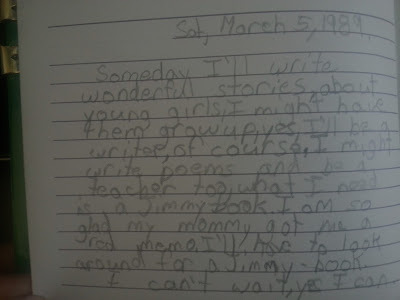 Sat, March 5, 1989,
Someday I'll write
wonderful stories, about
young girls, I might have
them grow up, yes, I'll be a
writer, of course, I might
write poems and be a
teacher too, what I need
is a Jimmy book. I am so
glad my mommy got me a
red memo. I'll, have to look
around for a Jimmy-book.
I can't wait, yes I can.